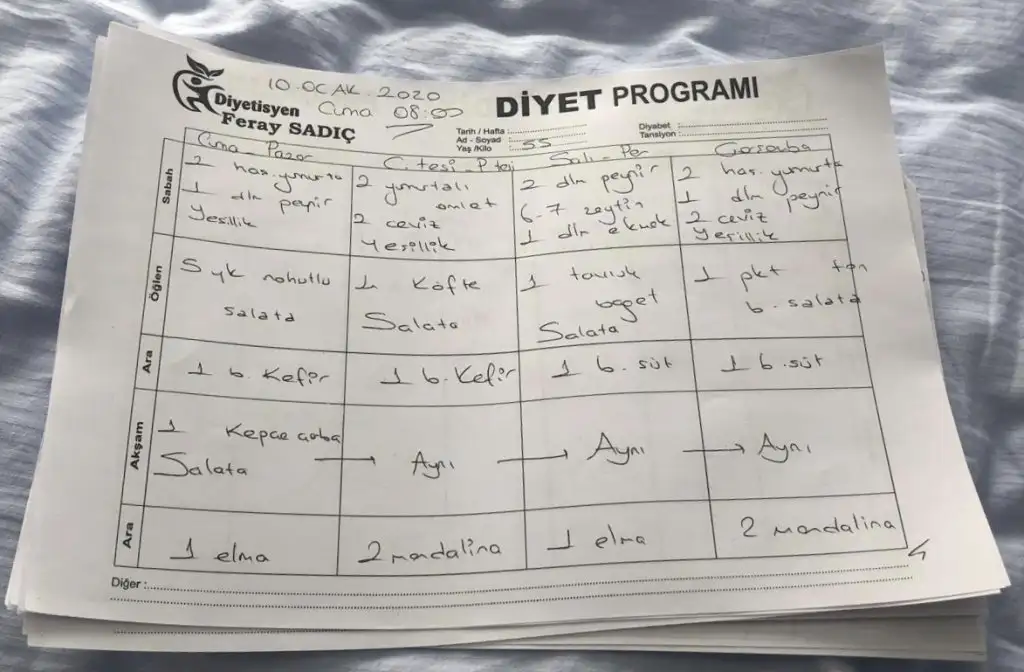 10.OCAK.2020
Cuma 08:00
Diyetisyen
Feray SADIÇ
DİYET PROGRAMI
Tarih / Hafta :
Ad - Soyad :
Yaş /Kilo : 55
Diyabet :
Tansiyon :
Cuma - Pazar
C.tesi - P.tesi
Salı - Per
Çarşamba
Sabah
2 haş. yumurta
1 dlm peynir
Yeşillik
2 yumurtalı
omlet
2 ceviz
Yeşillik
2 dlm peynir
6-7 zeytin
1 dlm ekmek
2 haş. yumurta
1 dlm peynir
2 ceviz
Yeşillik
Öğlen
5 yk nohutlu
salata
1 Köfte
Salata
1 tavuk
baget
Salata
1 pkt ton
b. salata
Ara
1 b. Kefir
1 b. Kefir
1 b. süt
1 b. süt
Akşam
1 Kepçe çorba
Salata
→ Aynı
→ Aynı
→ Aynı
Ara
1 elma
2 mandalina
1 elma
2 mandalina
Diğer :